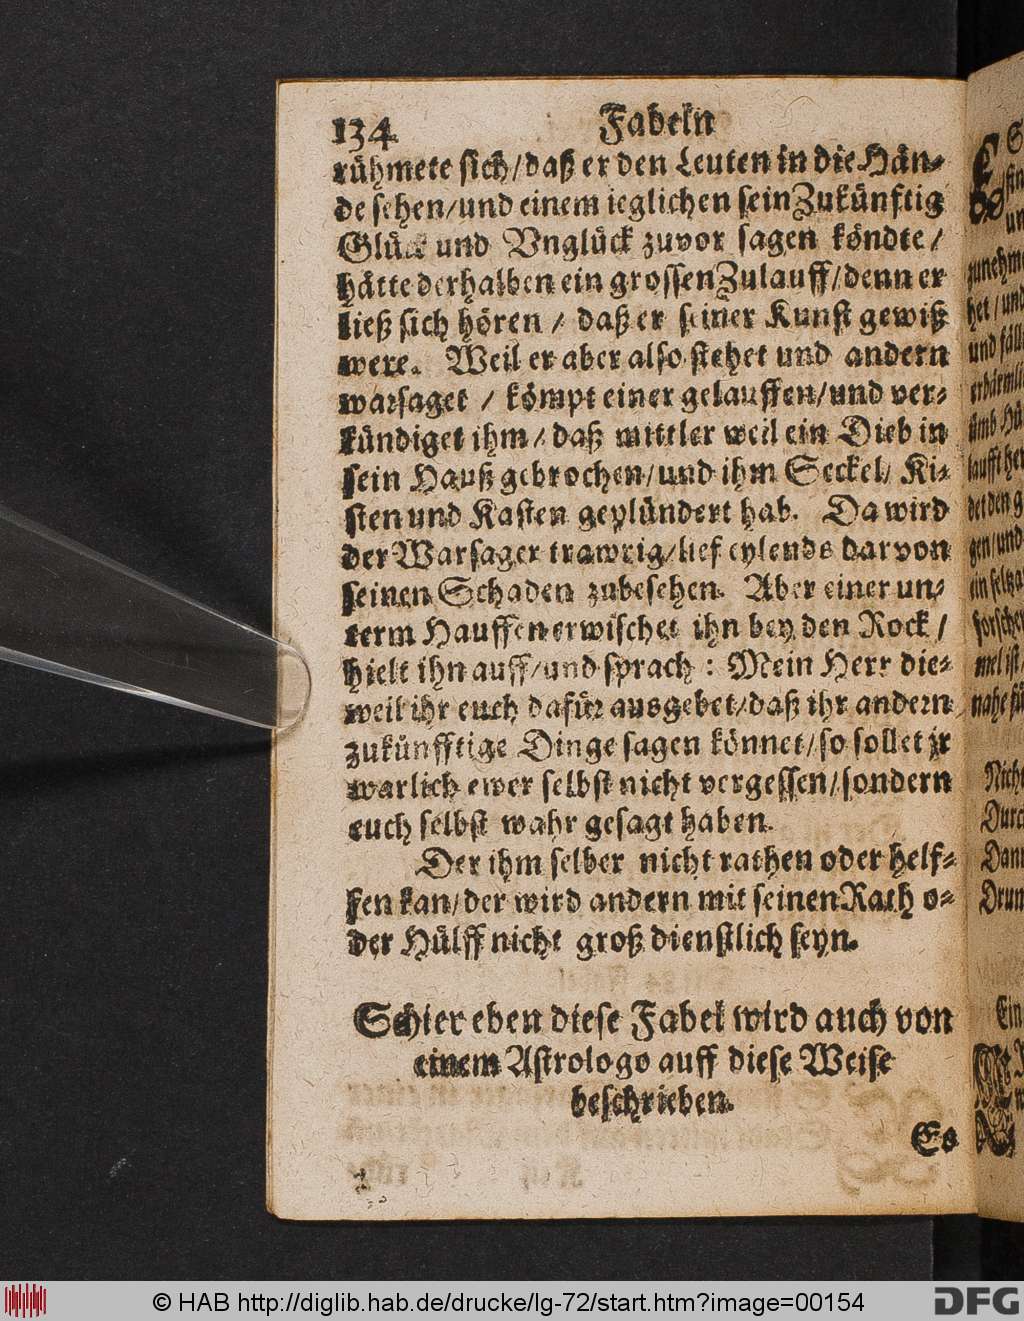 134 Fabeln
rühmete sich/daß er den Leuten in die Hän-
de sehen/und einem ieglichen sein Zukünftig
Glück und Vnglück zuvor sagen köndte/
hätte derhalben ein grossen Zulauff/denn er
ließ sich hören / daß er seiner Kunst gewiß
were. Weil er aber also stehet und andern
warsaget / kömpt einer gelauffen/und ver-
kündiget ihm / daß mittler weil ein Dieb in
sein Hauß gebrochen/und ihm Seckel/ Ki-
sten und Kasten geplündert hab. Da wird
der Warsager trawrig/lief eylends darvon
seinen Schaden zubesehen. Aber einer un-
term Hauffen erwischet ihn bey den Rock /
hielt ihn auff/und sprach : Mein Herr die-
weil ihr euch dafür ausgebet/daß ihr andern
zukünfftige Dinge sagen könnet/so sollet jr
warlich ewer selbst nicht vergessen/sondern
euch selbst wahr gesagt haben.
Der ihm selber nicht rathen oder helf-
fen kan/der wird andern mit seinen Rath o-
der Hülff nicht groß dienstlich seyn.
Schier eben diese Fabel wird auch von
einem Astrologo auff diese Weise
beschrieben.
Es
zunehm
het / und
und fäll
erbärmli
ümb Hü
laufft her
det den g
gen/und
ein seltza
forschet
mel ist/
nahe für
Nicht
Durc
Dann
Drun
Ein
© HAB http://diglib.hab.de/drucke/lg-72/start.htm?image=00154
DFG